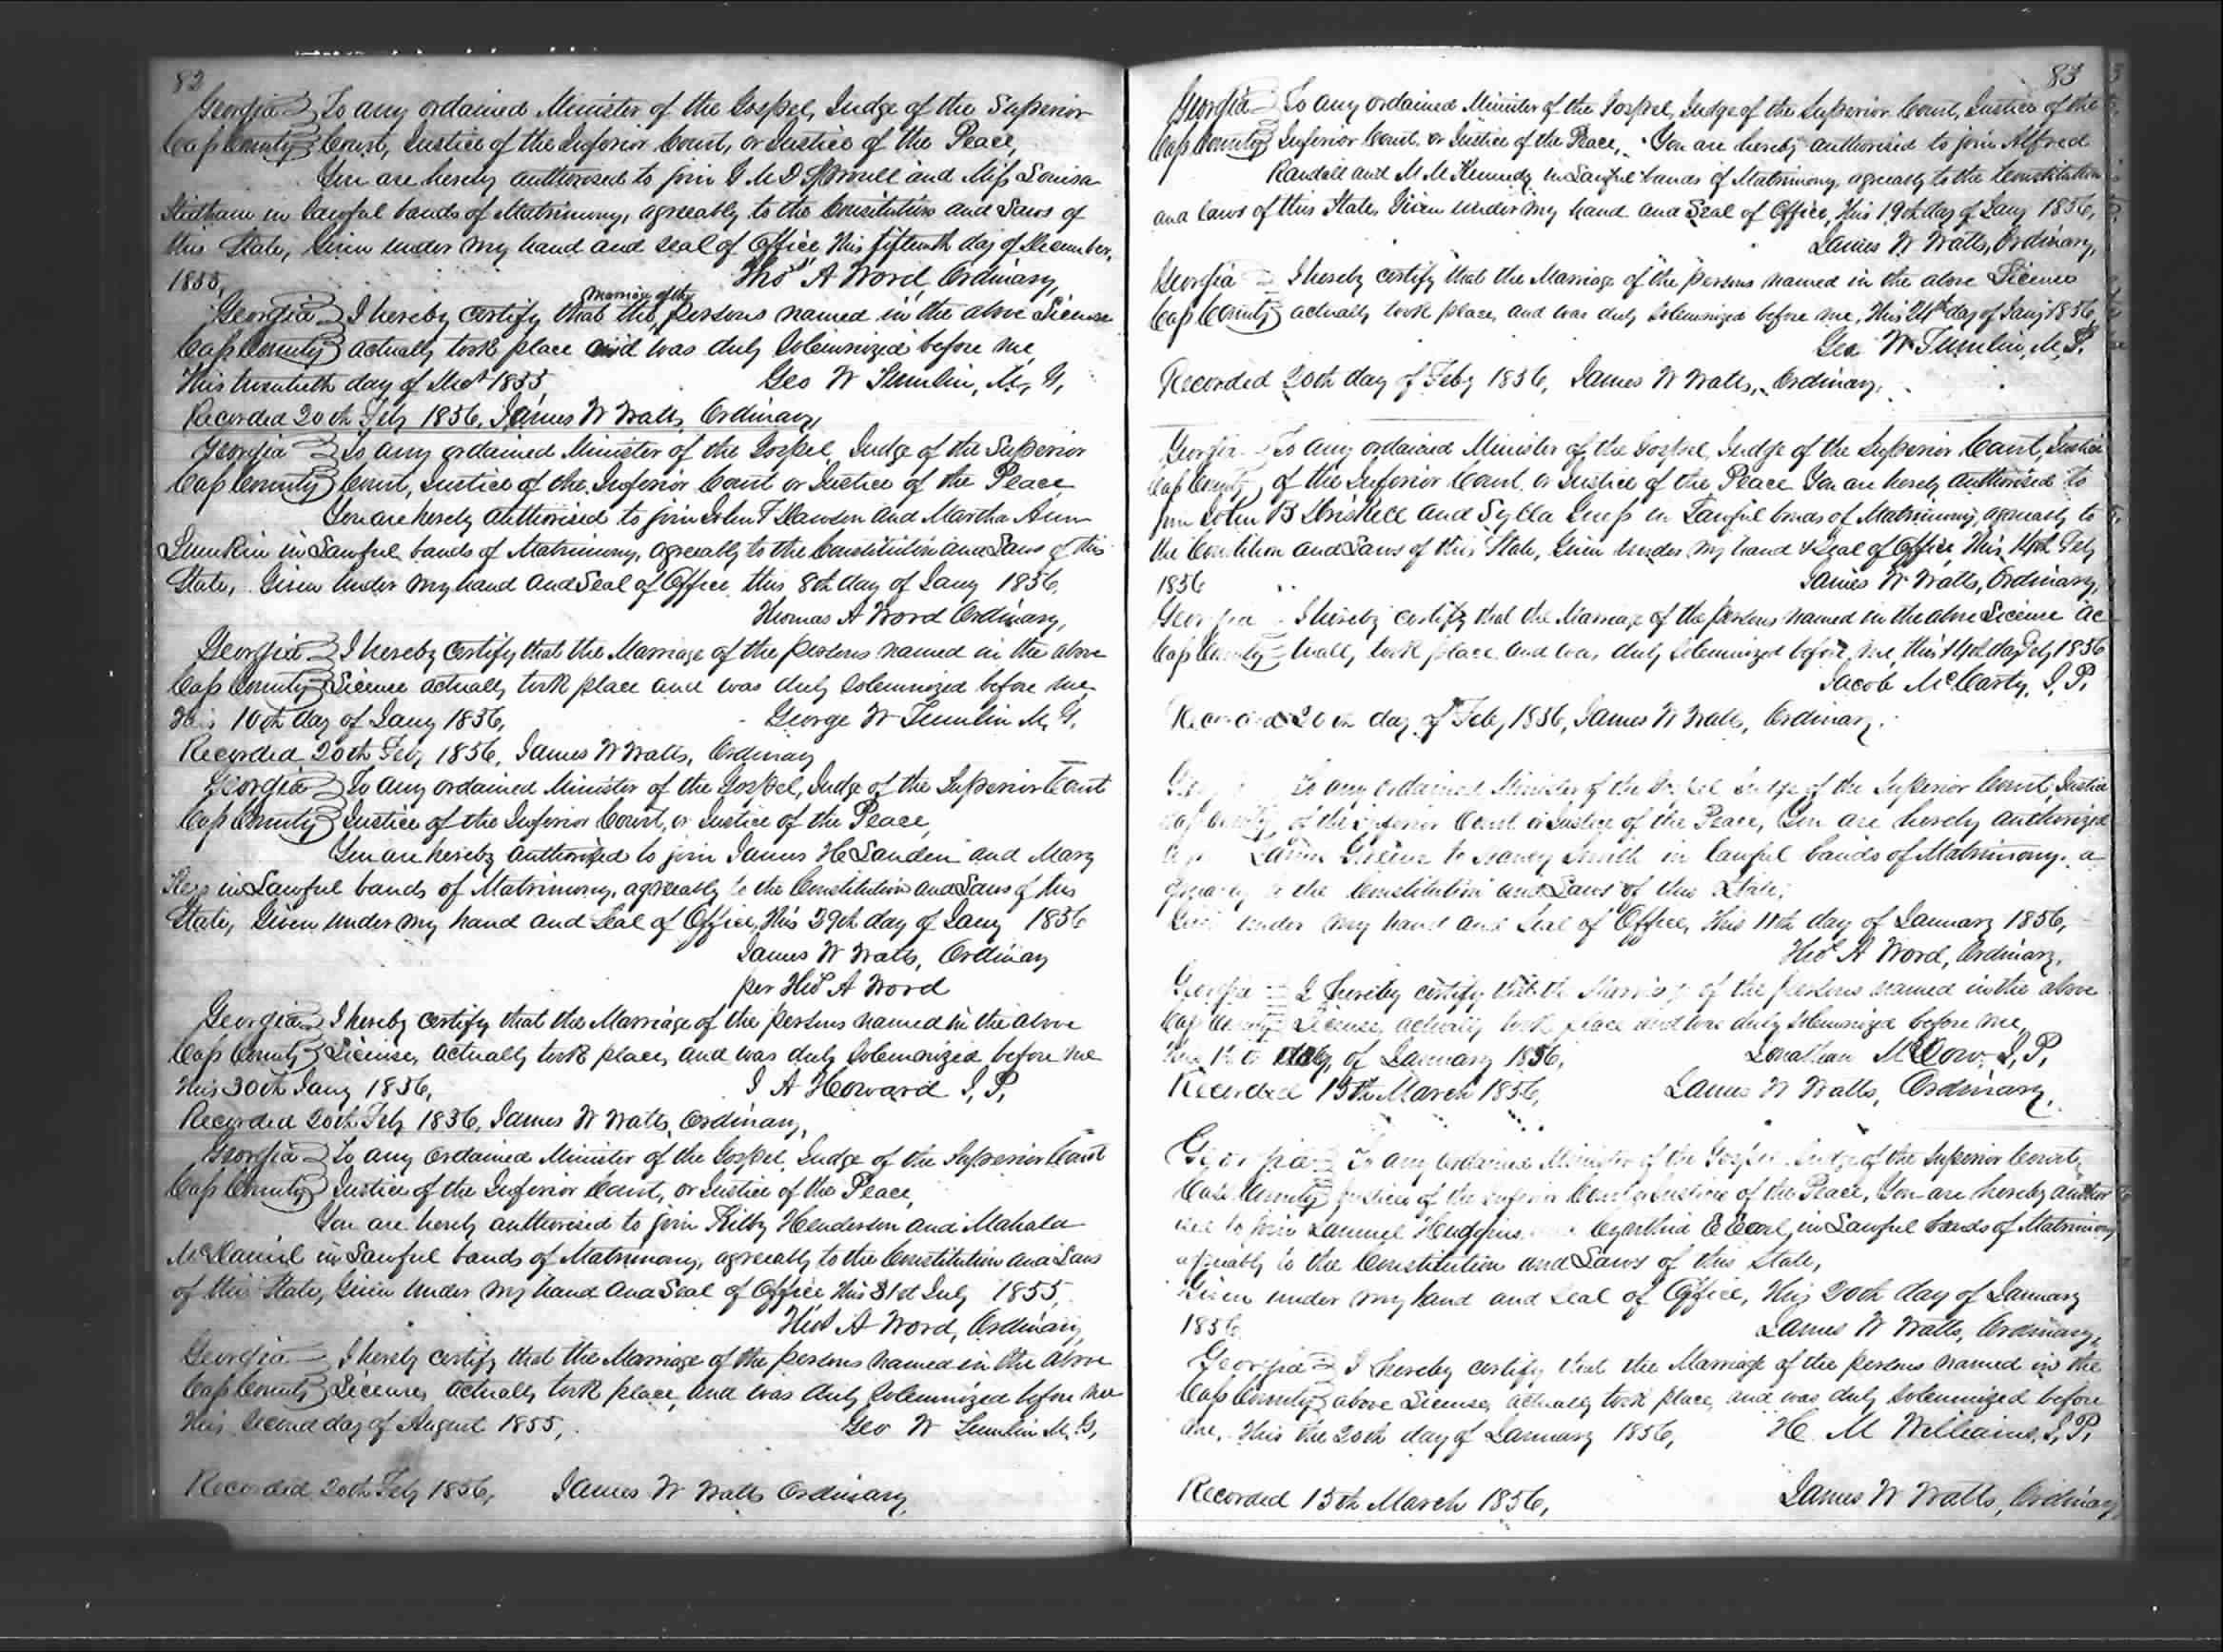 82
Georgia To any ordained Minister of the Gospel, Judge of the Superior
Cass County Court, Justice of the Inferior Court, or Justice of the Peace,
You are hereby authorised to join and Miss Louisa
in lawful bands of Matrimony, agreeably to the Constitution and Laws of
this State, Given under my hand and seal of Office, this fifteenth day of December,
1855, Thos A Word, Ordinary,
marriage of the
Georgia I hereby certify that the persons named in the above License
Cass County actually took place and was duly Solemnized before me
This twentieth day of Decr 1855 Geo W Tumlin, M, G,
Recorded 20th Feby 1856, James W Watts, Ordinary,
Georgia To any ordained Minister of the Gospel, Judge of the Superior
Cass County Court, Justice of the Inferior Court or Justice of the Peace
You are hereby authorised to join John F Dawson and Martha Ann
Lumpkin in Lawful bands of Matrimony, agreeably to the Constitution and Laws of this
State, Given under my hand and Seal of Office, this 8th day of Jany 1856,
Thomas A Word Ordinary,
Georgia I hereby certify that the Marriage of the persons named in the above
Cass County License actually took place and was duly Solemnized before me
this 10th day of Jany 1856, George W Tumlin M, G,
Recorded 20th Feby 1856, James W Watts, Ordinary
Georgia To any ordained Minister of the Gospel, Judge of the Superior Court
Cass County Justice of the Inferior Court, or Justice of the Peace,
You are hereby authorised to join James H and Mary
in Lawful bands of Matrimony, agreeably to the Constitution and Laws of this
State, Given under my hand and Seal of Office, this 29th day of Jany 1856
James W Watts, Ordinary
per Thos A Word
Georgia I hereby certify that the Marriage of the persons named in the above
Cass County License, actually took place, and was duly Solemnized before me
this 30th Jany 1856, J A Howard J, P,
Recorded 20th Feby 1856, James W Watts, Ordinary,
Georgia To any ordained Minister of the Gospel, Judge of the Superior Court
Cass County Justice of the Inferior Court, or Justice of the Peace,
You are hereby authorised to join Henderson and Mahala
McDaniel in Lawful bands of Matrimony, agreeably to the Constitution and Laws
of this State, Given under my hand and Seal of Office this 31st July 1855,
Thos A Word, Ordinary,
Georgia I hereby certify that the Marriage of the persons named in the above
Cass County License, actually took place, and was duly Solemnized before me
this second day of August 1855, Geo W Tumlin M, G,
Recorded 20th Feby 1856, James W Watts Ordinary,
83
Georgia To any ordained Minister of the Gospel, Judge of the Superior Court, Justice of the
Cass County Inferior Court, or Justice of the Peace, You are hereby authorised to join Alfred
Randall and M M Kennedy in Lawful bands of Matrimony, agreeably to the Constitution
and laws of this State, Given under my hand and Seal of Office, this 19th day of Jany 1856,
James W Watts, Ordinary,
Georgia I hereby certify that the Marriage of the persons named in the above License
Cass County actually took place, and was duly Solemnized before me, this day of Jany 1856,
Geo W Tumlin, M,
Recorded 20th day of Feby 1856, James W Watts, Ordinary,
Georgia To any ordained Minister of the Gospel, Judge of the Superior Court, Justice
Cass County, of the Inferior Court, or Justice of the Peace You are hereby authorised to
join John B and in Lawful bonds of Matrimony, agreeably to
the and Laws of this State, Given under my hand & Seal of Office, this 14th Feby
1856 James W Watts, Ordinary,
Georgia I hereby certify that the Marriage of the persons named in the above License ac
Cass County tually took place and was duly Solemnized before me, this 14th day Feby 1856
Jacob McCarty, J, P,
Recorded 20th day of Feby 1856, James W Watts, Ordinary.
To any ordained Minister of the Gospel Judge of the Superior Court, Justice
Cass County, of the Inferior Court or Justice of the Peace, You are hereby authorized
to Nancy Smith in lawful bands of Matrimony, a
to the Constitution and Laws of this State,
under my hand and Seal of Office, this 11th day of January 1856,
Thos A Word, Ordinary,
Georgia I hereby certify that the Marriage of the persons named in the above
Cass County License, actually took place and was duly Solemnized before me,
day, of January 1856, Jonathan J, P,
Recorded 15th March 1856, James W Watts, Ordinary,
Georgia To any ordained Minister of the Gospel Judge of the Superior Court,
Cass County Justice of the Inferior Court or Justice of the Peace, You are hereby author
ised to join Samuel Hudgins Cynthia E in Lawful bands of Matrimony
agreeably to the Constitution and Laws of this State,
Given under my hand and Seal of Office, this 20th day of January
1856 James W Watts, Ordinary,
Georgia I hereby certify that the Marriage of the persons named in the
Cass County above License, actually took place, and was duly Solemnized before
me, this the 20th day of January 1856, H M Williams, J, P,
Recorded 15th March 1856, James W Watts, Ordinary